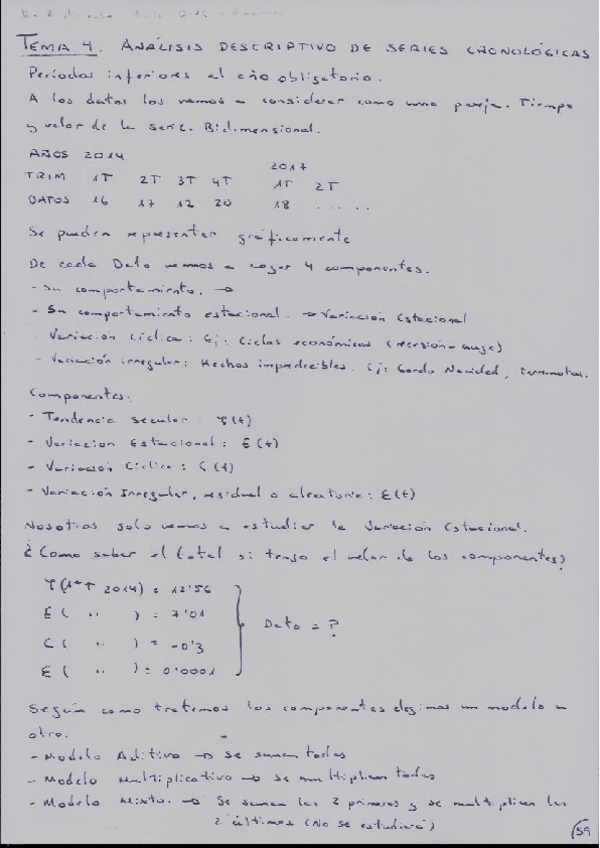 TEMA 4. ANÁLISIS DESCRIPTIVO DE SERIES CRONOLÓGICAS
Períodos inferiores al año obligatorio.
A los datos los vamos a considerar como una pareja. Tiempo
y valor de la serie. Bidimensional.
AÑOS 2014 2017
TRIM 1T 2T 3T 4T 1T 2T
DATOS 16 17 12 20 18 .....
Se pueden representar gráficamente
De cada Dato vamos a coger 4 componentes.
- Su comportamiento. →
- Su comportamiento estacional. → Variación Estacional
Variación Cíclica: Ej: Ciclos económicos (recesión-auge)
- Variación irregular: Hechos impredecibles. Ej: Gordo Navidad, terremotos.
Componentes:
- Tendencia secular: T(t)
- Variacion Estacional: E(t)
- Variación Cíclica: C(t)
- Variación Irregular, residual o aleatoria: E(t)
Nosotros solo vamos a estudiar la Variación Estacional.
¿Como saber el total si tengo el valor de los componentes?
T(1erT 2014) = 12'56
E( " ) = 7'01
C( " ) = -0'3
E( " ) = 0'0001
Dato = ?
Según como tratemos los componentes elegimos un modelo u
otro.
- Modelo Aditivo → Se suman todas
- Modelo Multiplicativo → Se multiplican todas
- Modelo Mixto. → Se suman las 2 primeras y se multiplican las
2 últimas (No se estudiará)
59